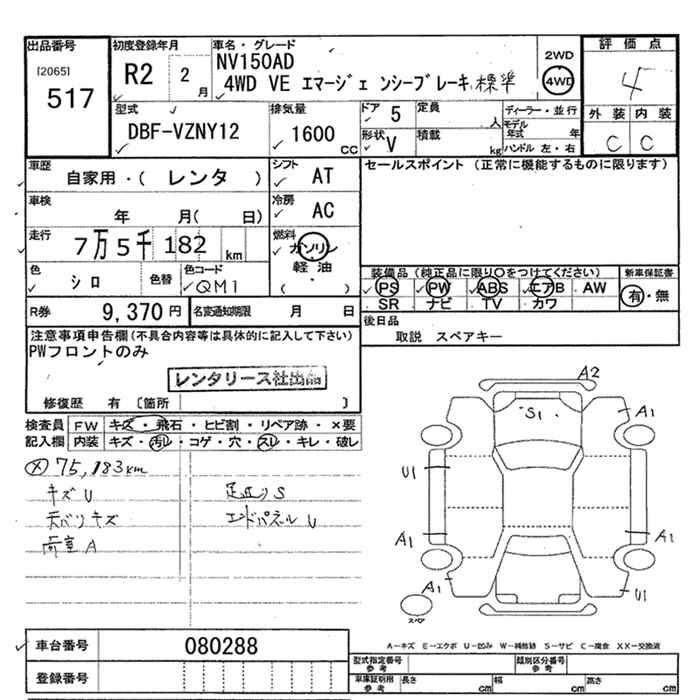 出品番号
[2065]
517
初度登録年月
R2 2月
車名・グレード
NV150AD
4WD VE エマージェンシーブレーキ 標準
2WD
4WD
評価点
4
外装 内装
C C
型式
DBF-VZNY12
排気量
1600 CC
ドア 5
定員 人
形状 V
積載 kg
ディーラー・並行
モデル年式 年
ハンドル 左・右
車歴
自家用・( レンタ )
シフト AT
車検
年 月( 日)
冷房 AC
走行
7万5千182 km
燃料
ガソリン
軽油
( )
セールスポイント (正常に機能するものに限ります)
色 シロ
色替
色コード
QM1
装備品 (純正品に限り○をつけてください)
PS PW ABS エアB AW
SR ナビ TV カワ
新車保証書
有・無
R券 9,370円
名変通知期限 月 日
後日品
取説 スペアキー
注意事項申告欄 (不具合内容等は具体的に記入して下さい)
PWフロントのみ
レンタリース社出品
修復歴 有 〔箇所 〕
検査員記入欄
FW キズ・飛石・ヒビ割・リペア跡・×要
内装 キズ・汚レ・コゲ・穴・スレ・キレ・破レ
75,183km
キズU
足廻りS
天バリキズ
エンドパネルU
荷室A
A2
S1
A1
U1
A1
A1
A1
U1
スペア
車台番号 080288
A-キズ E-エクボ U-凹み W-補修跡 S-サビ C-腐食 XX-交換済
登録番号
型式指定番号 参考
類別区分番号 参考
車庫証明用 参考
長さ cm 幅 cm 高さ cm